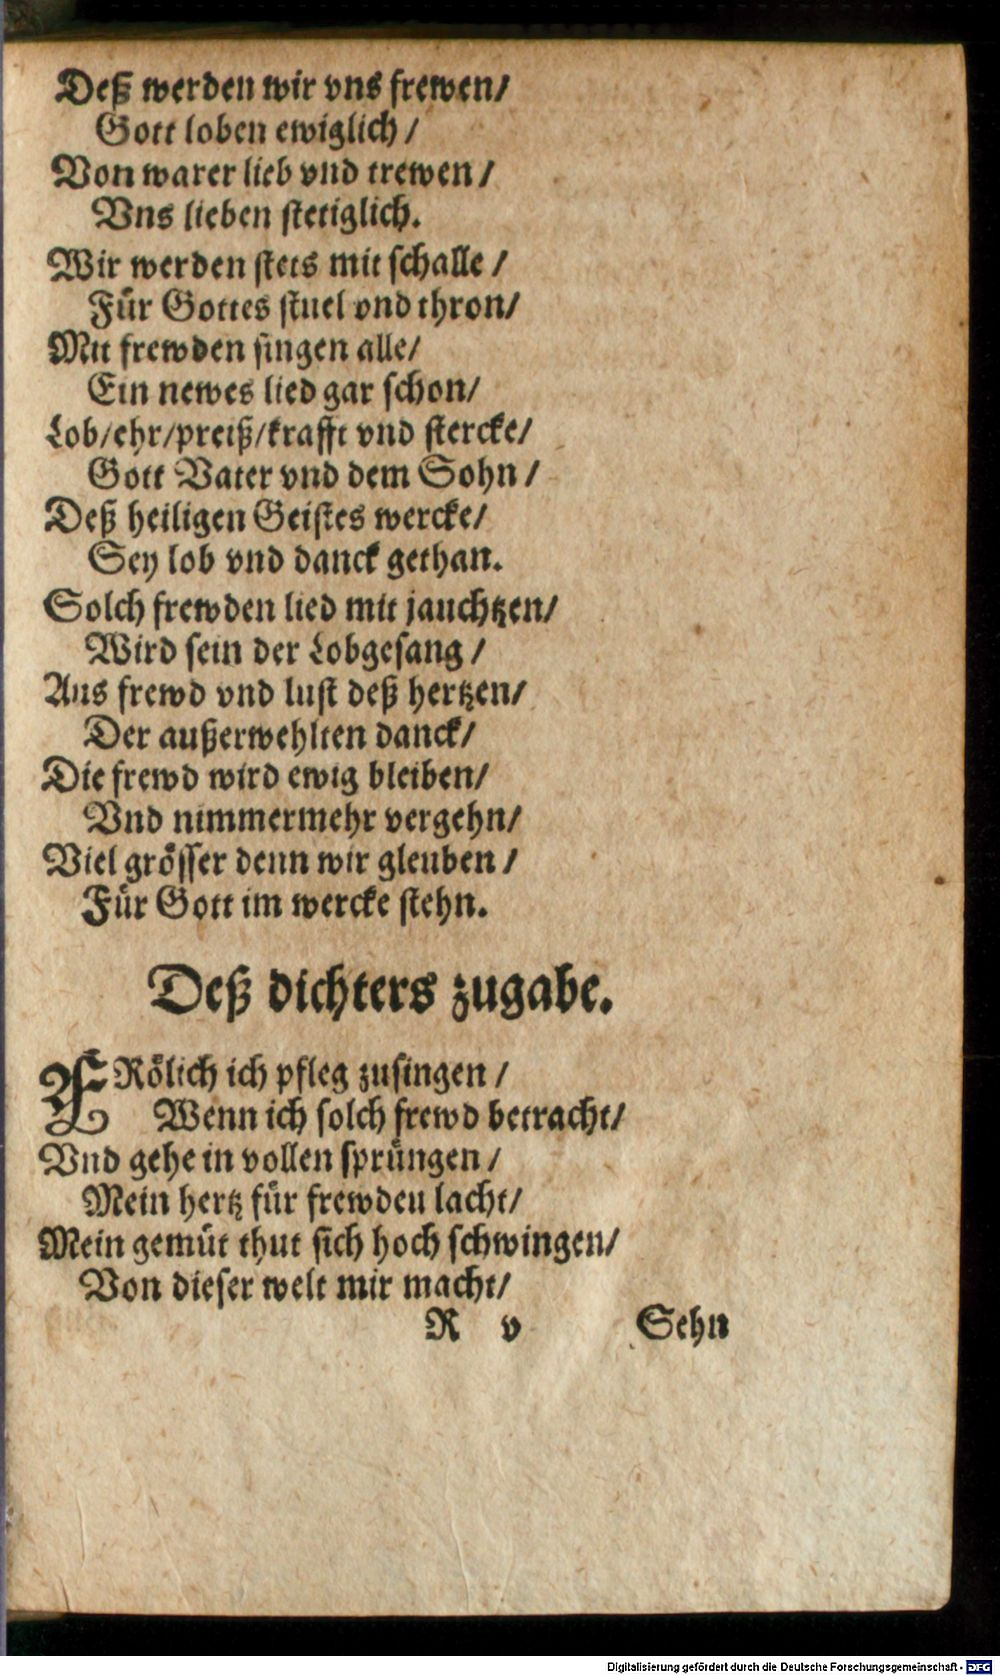 Deß werden wir vns frewen/
Gott loben ewiglich/
Von warer lieb vnd trewen/
Vns lieben stetiglich.
Wir werden stets mit schalle/
Für Gottes stuel vnd thron/
Mit frewden singen alle/
Ein newes lied gar schon/
Lob/ehr/preiß/krafft vnd stercke/
Gott Vater vnd dem Sohn/
Deß heiligen Geistes wercke/
Sey lob vnd danck gethan.
Solch frewden lied mit jauchtzen/
Wird sein der Lobgesang/
Aus frewd vnd lust deß hertzen/
Der außerwehlten danck/
Die frewd wird ewig bleiben/
Vnd nimmermehr vergehn/
Viel grösser denn wir gleuben/
Für Gott im wercke stehn.
Deß dichters zugabe.
FRölich ich pfleg zusingen/
Wenn ich solch frewd betracht/
Vnd gehe in vollen sprüngen/
Mein hertz für frewden lacht/
Mein gemüt thut sich hoch schwingen/
Von dieser welt mir macht/
R v Sehn
Digitalisierung gefördert durch die Deutsche Forschungsgemeinschaft - DFG